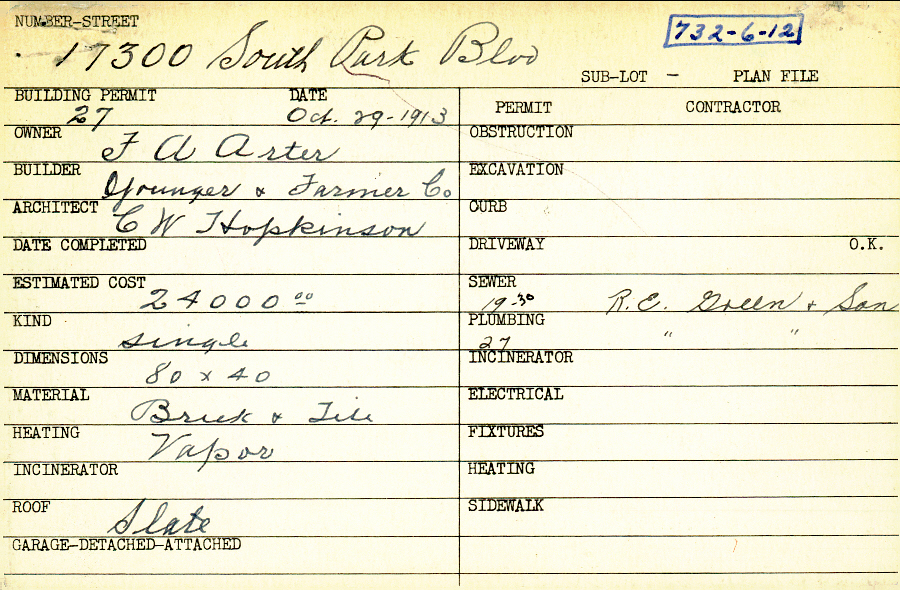 NUMBER-STREET
17300 South Park Blvd
732-6-12
SUB-LOT - PLAN FILE
BUILDING PERMIT DATE
27 Oct. 29-1913
OWNER
F A Arter
BUILDER
Younger & Farmer Co
ARCHITECT
C W Hopkinson
DATE COMPLETED
ESTIMATED COST
24000 00
KIND
single
DIMENSIONS
80 x 40
MATERIAL
Brick & Tile
HEATING
Vapor
INCINERATOR
ROOF
Slate
GARAGE-DETACHED-ATTACHED
PERMIT CONTRACTOR
OBSTRUCTION
EXCAVATION
CURB
DRIVEWAY O.K.
SEWER
19-30 R.E. Green & Son
PLUMBING
27 " "
INCINERATOR
ELECTRICAL
FIXTURES
HEATING
SIDEWALK